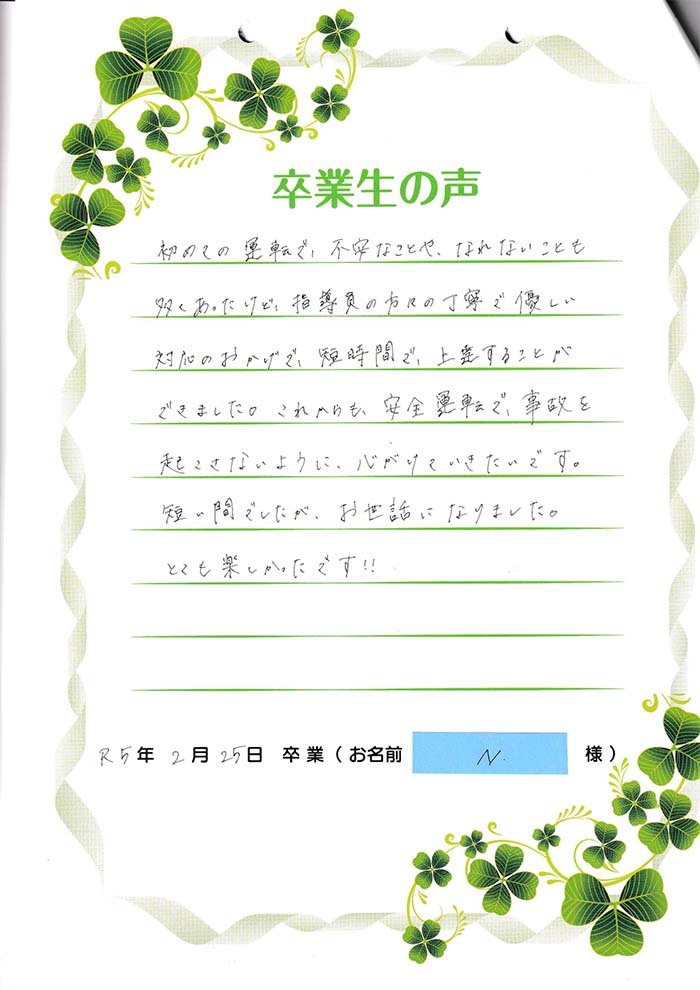 卒業生の声
初めての運転で、不安なことや、なれないことも
多くあったけど、指導員の方々の丁寧で優しい
対応のおかげで、短時間で、上達することが
できました。これからも、安全運転で、事故を
起こさないように、心がけていきたいです。
短い間でしたが、お世話になりました。
とても楽しかったです!!
R5年 2月25日 卒業(お名前 N. 様)